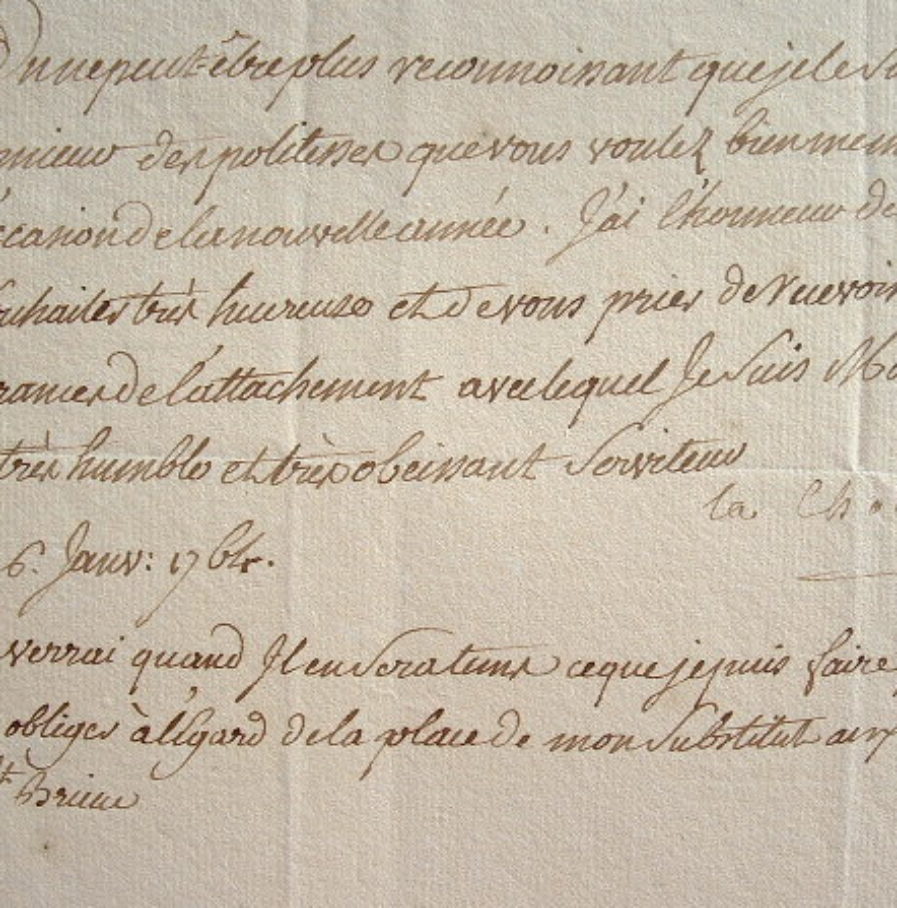 On ne peut être plus reconnoissant que je le Su
des politesses que vous voulez bien
ccasion de la nouvelle année. J'ai l'honneur de
ouhaiter très heureuse et de vous prier de recevoir
rances de l'attachement avec lequel Je Suis Mo
très humble et très obeissant Serviteur
la Ch
6. Janv: 1764.
verrai quand Il en Sera tems ce que je puis faire
obliger à l'égard de la place de mon Substitut aux
t Brieuc